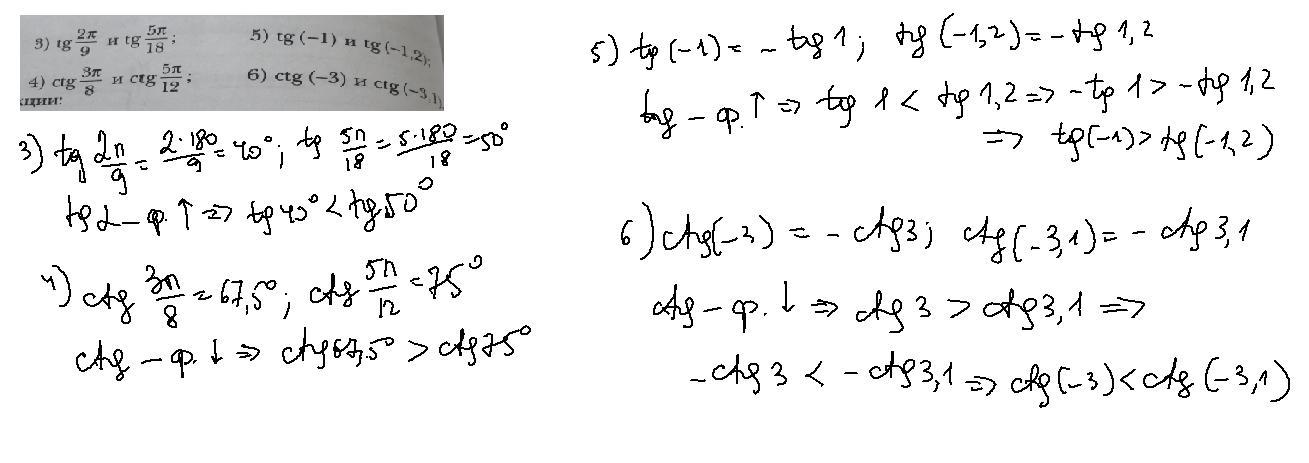 3) tg 2π/9 и tg 5π/18;
5) tg (−1) и tg (−1,2);
4) ctg 3π/8 и ctg 5π/12;
6) ctg (−3) и ctg (−3,1)
ции:
3) tg 2π/9 = 2·180/9 = 40°; tg 5π/18 = 5·180/18 = 50°
tg α − ф. ↑ ⇒ tg 40° < tg 50°
4) ctg 3π/8 = 67,5°; ctg 5π/12 = 75°
ctg − ф. ↓ ⇒ ctg 67,5° > ctg 75°
5) tg (−1) = − tg 1; tg (−1,2) = − tg 1,2
tg − ф. ↑ ⇒ tg 1 < tg 1,2 ⇒ −tg 1 > −tg 1,2
⇒ tg(−1) > tg(−1,2)
6) ctg(−3) = − ctg 3; ctg(−3,1) = − ctg 3,1
ctg − ф. ↓ ⇒ ctg 3 > ctg 3,1 ⇒
−ctg 3 < −ctg 3,1 ⇒ ctg(−3) < ctg (−3,1)